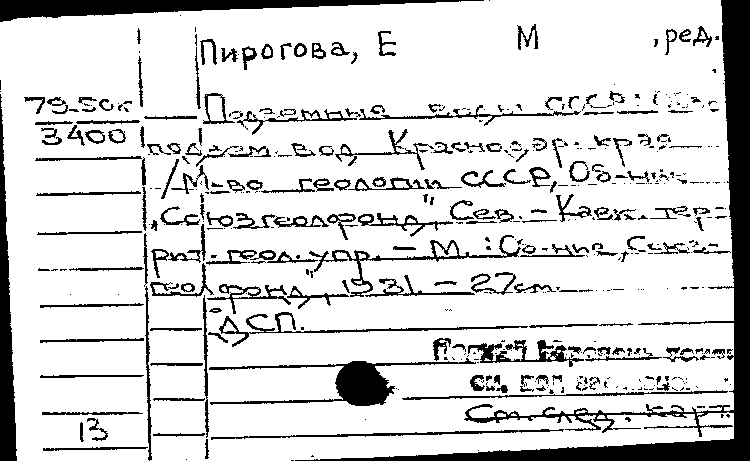 Пирогова, Е М , ред.
79-50к Подземные воды СССР: Обз.
3400 подзем. вод Краснодар. края
/ М-во геологии СССР, Об-ние
„Союзгеолфонд", Сев. - Кавк. тер-
рит. геол. упр. - М. : Об-ние „Союз-
геолфонд", 1981. - 27см.
ДСП.
Полный перечень томов
см. под заглавием
См. след. карт.
13